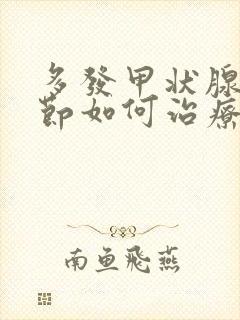 多發甲状腺
節如何治療
南鱼飛燕